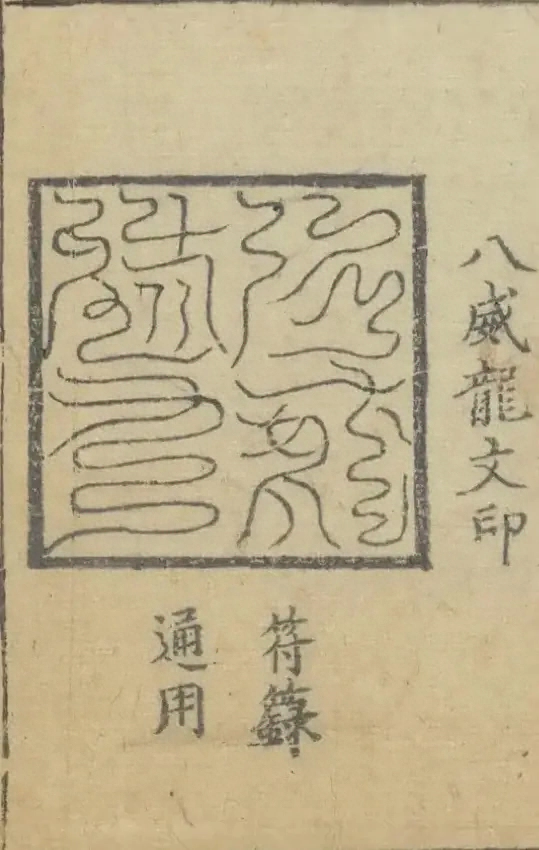 八威龍文印
符籙
通用